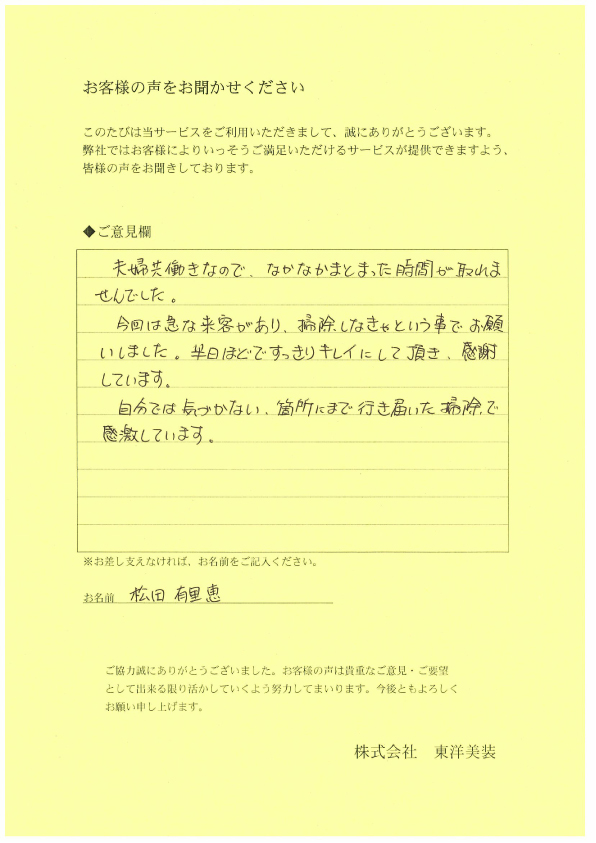 お客様の声をお聞かせください
このたびは当サービスをご利用いただきまして、誠にありがとうございます。
弊社ではお客様によりいっそうご満足いただけるサービスが提供できますよう、
皆様の声をお聞きしております。
◆ご意見欄
夫婦共働きなので、なかなかまとまった時間が取れま
せんでした。
今回は急な来客があり、掃除しなきゃという事でお願
いしました。半日ほどですっきりキレイにして頂き、感謝
しています。
自分では気づかない、箇所にまで行き届いた掃除で
感激しています。
※お差し支えなければ、お名前をご記入ください。
お名前 松田 有里恵
ご協力誠にありがとうございました。お客様の声は貴重なご意見・ご要望
として出来る限り活かしていくよう努力してまいります。今後ともよろしく
お願い申し上げます。
株式会社 東洋美装